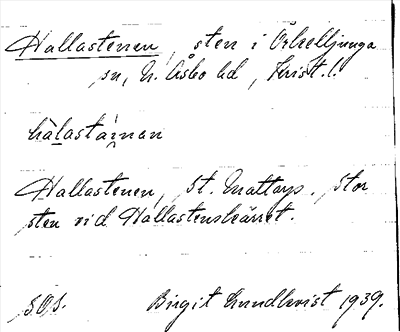 Hallastenen, sten i Örkelljunga
sn, N. Åsbo hd, Krist.l.
hàlastáinan
Hallastenen, St. Mattarp. Stor
sten vid Hallastenskärret.
S.O.S. Birgit Lundkvist 1939.